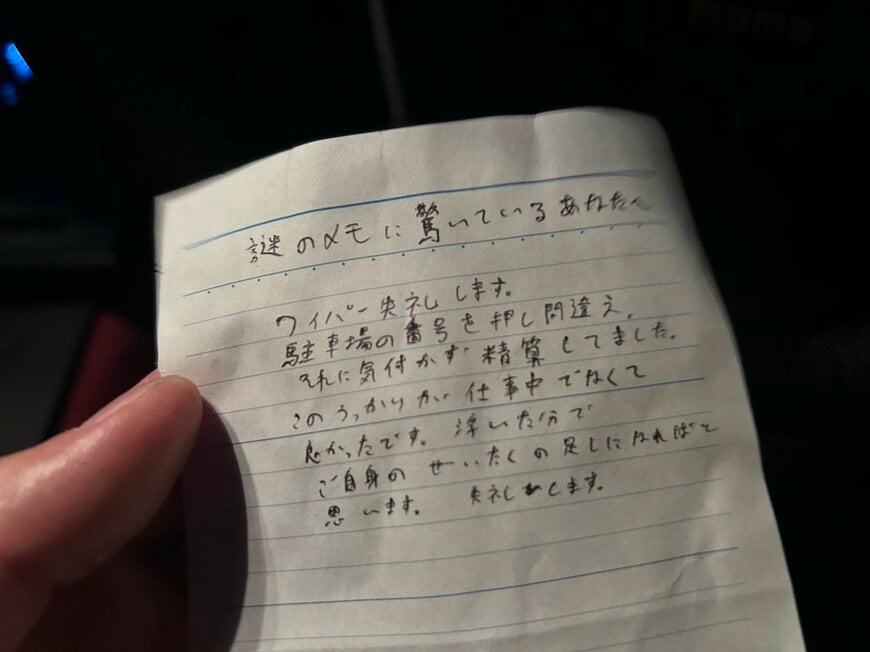 謎のメモに驚いているあなたへ
ワイパー失礼します。
駐車場の番号を押し間違え、
それに気付かず精算してました。
このうっかりが仕事中でなくて
良かったです。浮いた分で
ご自身のぜいたくの足しになればと
思います。失礼します。